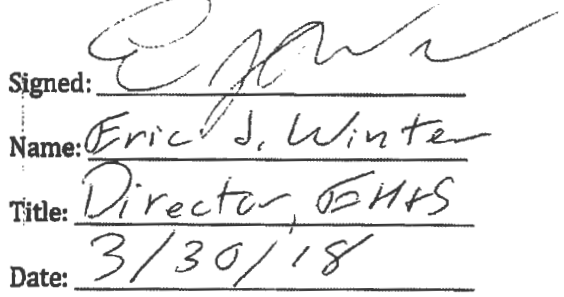 Signed:
Name: Eric J. Winter
Title: Director, EH+S
Date: 3/30/18